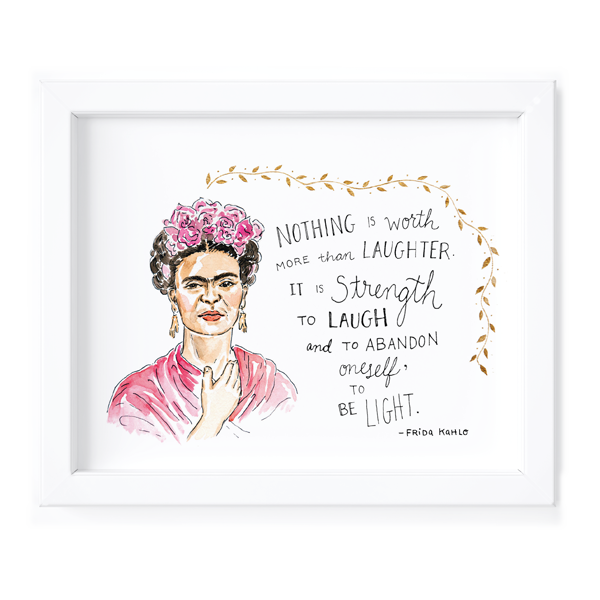 NOTHING is worth
MORE than LAUGHTER.
IT is Strength
TO LAUGH
and TO ABANDON
oneself,
TO
BE LIGHT.
-FRIDA KAHLO